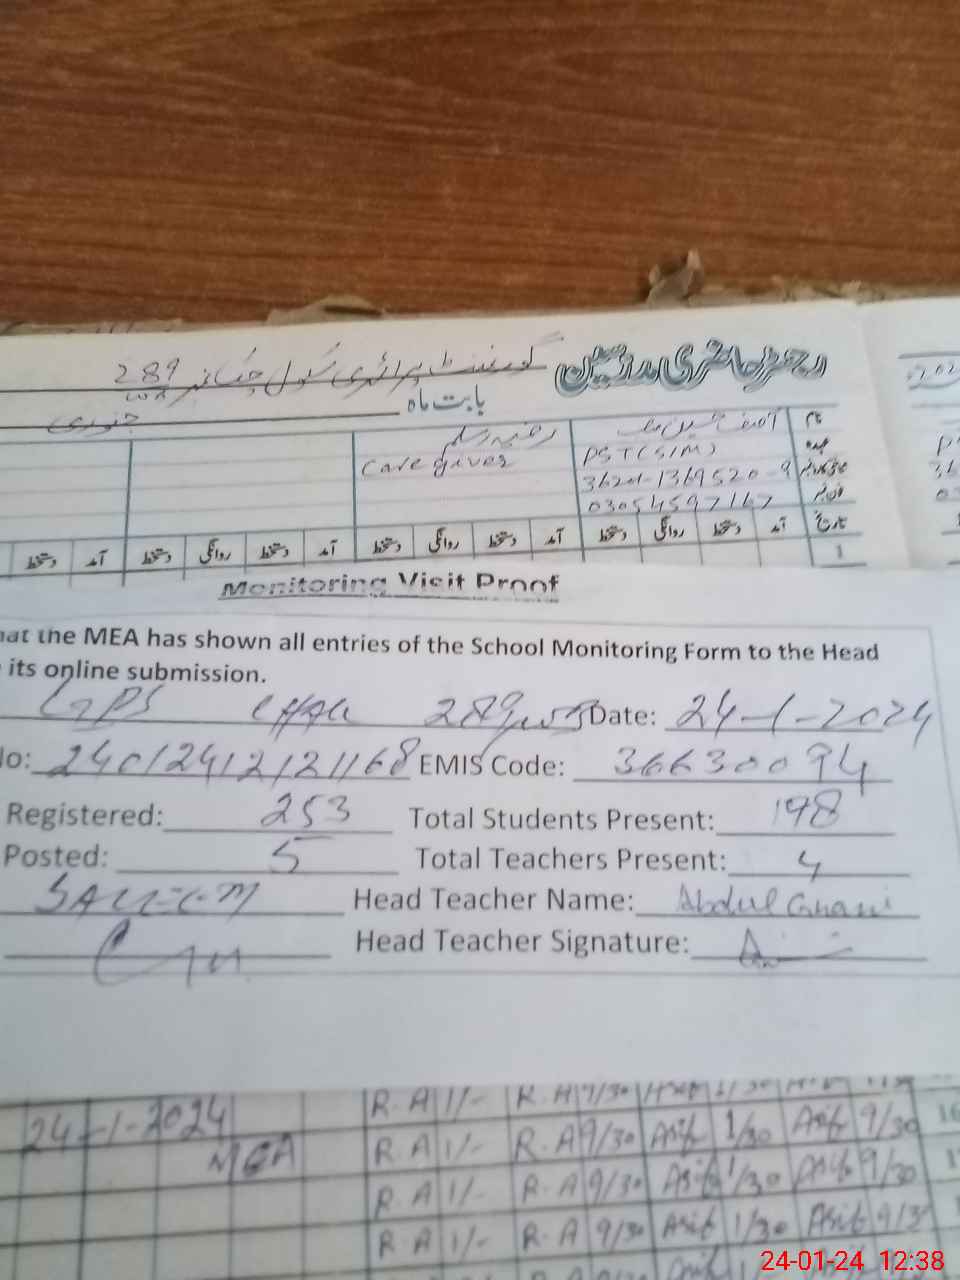 رجسٹر حاضری مدرسین گورنمنٹ پرائمری سکول چک نمبر 289
بابت ماہ جنوری
نام
PST (SIM)
Care giver
36201-1369520-9
03054597167
تاریخ آمد دستخط روانگی دستخط آمد دستخط روانگی دستخط آمد دستخط روانگی دستخط آمد دستخط
1
Monitoring Visit Proof
hat the MEA has shown all entries of the School Monitoring Form to the Head
its online submission.
GPS CHAK 289 Date: 24-1-2024
No: 24012412121168 EMIS Code: 36630094
Registered: 253 Total Students Present: 198
Posted: 5 Total Teachers Present: 4
SALEEM Head Teacher Name: Abdul Ghani
Head Teacher Signature:
R.A 1/- R.A 9/30
24-1-2024 R.A 1/- R.A 9/30 Asif 1/30 Asif 9/30 16
MEA R.A 1/- R.A 9/30 Asif 1/30 Asif 9/30
R.A 1/- R.A 9/30 Asif 1/30 Asif 9/3
24-01-24 12:38